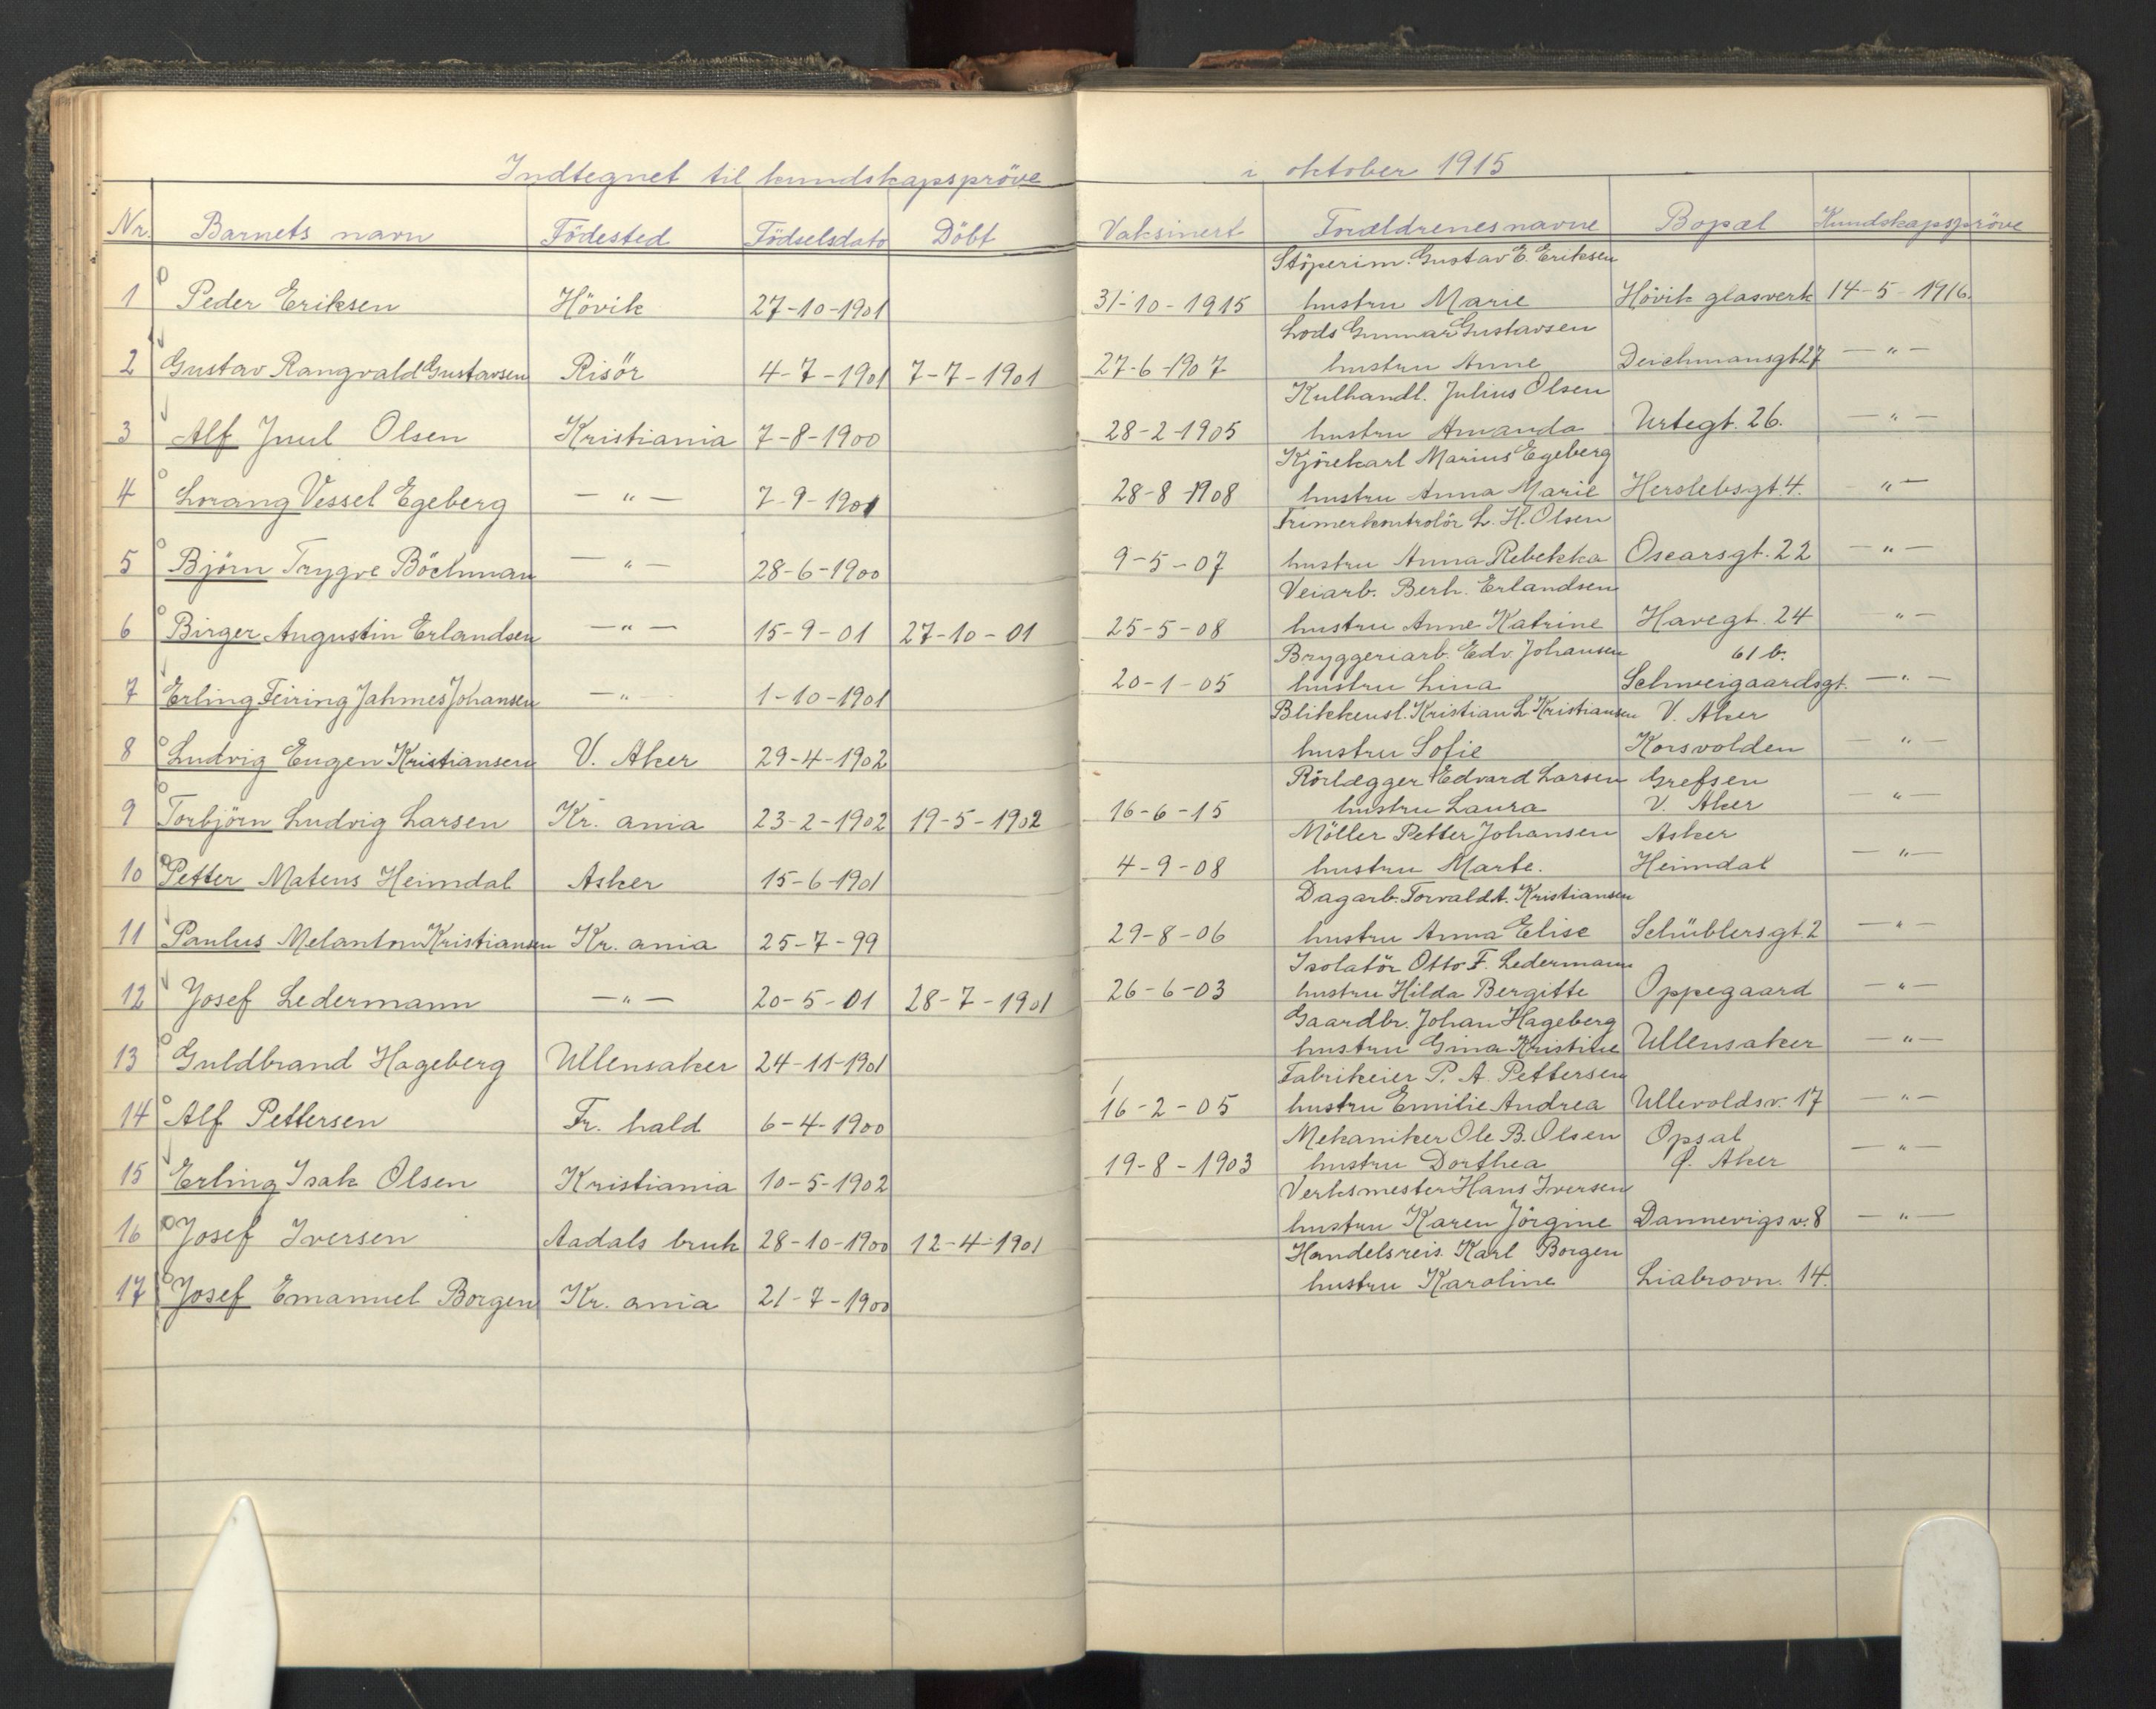 Indtegnet til kundskapspröve i oktober 1915
Nr. Barnets navn Födested Födselsdato Döbt Vaksinert Forældrenes navne Bopæl Kundskapspröve
Stöperim. Gustav E. Eriksen
1 Peder Eriksen Hövik 27-10-1901 31-10-1915 hustru Marie Hövik glasverk 14-5-1916.
Lods Gunnar Gustavsen
2 Gustav Rangvald Gustavsen Risör 4-7-1901 7-7-1901 27-6-1907 hustru Anne Deichmansgt 27 — " —
Kulhandl. Julius Olsen
3 Alf Juul Olsen Kristiania 7-8-1900 28-2-1905 hustru Amanda Urtegt. 26. — " —
Kjörekarl Marius Egeberg
4 Lorang Vessel Egeberg — " — 7-9-1901 28-8-1908 hustru Anna Marie Herslebsgt. 4. " —
L. H. Olsen
5 Björn Trygve Böckman — " — 28-6-1900 9-5-07 hustru Anna Rebekka Oscarsgt. 22 — " —
Veiarb. Berh. Erlandsen
6 Birger Augustin Erlandsen — " — 15-9-01 27-10-01 25-5-08 hustru Anne Katrine Havegt. 24 — " —
Bryggeriarb. Edv. Johansen 61 b.
7 Erling Feiring Jahmes Johansen — " — 1-10-1901 20-1-05 hustru Lina Schweigaardsgt. — " —
Blikkensl. Kristian L. Kristiansen V. Aker
8 Ludvig Eugen Kristiansen V. Aker 29-4-1902 hustru Sofie Korsvolden — " —
Rörlægger Edvard Larsen Grefsen
9 Torbjörn Ludvig Larsen Kr. ania 23-2-1902 19-5-1902 16-6-15 hustru Laura V. Aker — " —
Möller Petter Johansen Asker
10 Petter Mateus Heimdal Asker 15-6-1901 4-9-08 hustru Marte. Heimdal — " —
Dagarb. Torvald A. Kristiansen
11 Paulus Melanton Kristiansen Kr. ania 25-7-99 29-8-06 hustru Anna Elise Schüblersgt. 2 — " —
Isolatör Otto F. Ledermann
12 Josef Ledermann — " — 20-5-01 28-7-1901 26-6-03 hustru Hilda Bergitte Oppegaard — " —
Gaardbr. Johan Hageberg
13 Guldbrand Hageberg Ullensaker 24-11-1901 hustru Gina Kristine Ullensaker — " —
Fabrikeier P. A. Pettersen
14 Alf Pettersen Fr. hald 6-4-1900 16-2-05 hustru Emilie Andrea Ullevoldsv. 17 — " —
Mekaniker Ole B. Olsen Opsal
15 Erling Isak Olsen Kristiania 10-5-1902 19-8-1903 hustru Dorthea Ö. Aker — " —
Verksmester Hans Iversen
16 Josef Iversen Aadals bruk 28-10-1900 12-4-1901 hustru Karen Jörgine Dannevigsv. 8 — " —
Handelsreis. Karl Borgen
17 Josef Emanuel Borgen Kr. ania 21-7-1900 hustru Karoline Liabrovn. 14.